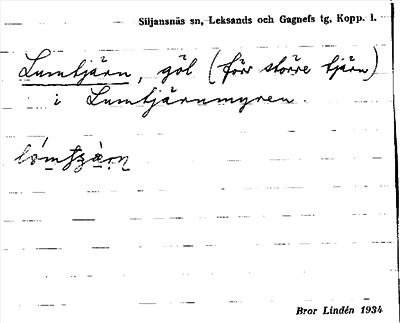 Siljansnäs sn, Leksands och Gagnefs tg, Kopp. l.
Lumtjärn, göl (förr större tjärn)
i Lumtjärnmyren.
Bror Lindén 1934